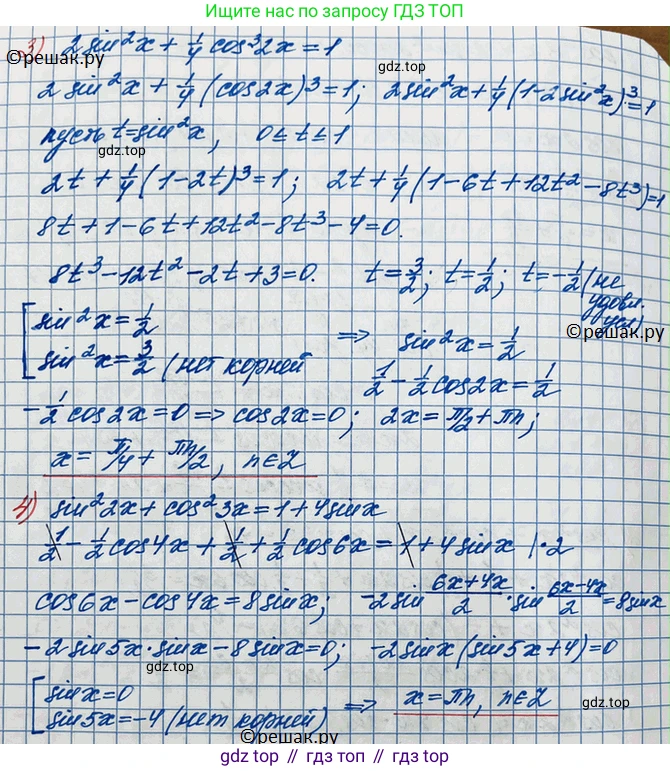 Ищите нас по запросу ГДЗ ТОП
©reшак.ру
3) 2sin²x + 1/4 cos³2x = 1
2sin²x + 1/4 (cos2x)³ = 1; 2sin²x + 1/4 (1-2sin²x)³ = 1
gdz top
пусть t = sin²x, 0 ≤ t ≤ 1
2t + 1/4 (1-2t)³ = 1; 2t + 1/4 (1-6t+12t²-8t³) = 1
8t + 1 - 6t + 12t² - 8t³ - 4 = 0.
gdz.top
8t³ - 12t² - 2t + 3 = 0. t = 3/2; t = 1/2; t = -1/2 (не удовл. усл)
©reшак.ру
[ sin²x = 1/2
sin²x = 3/2 (нет корней ⇒ sin²x = 1/2
1/2 - 1/2 cos2x = 1/2
-1/2 cos2x = 0 ⇒ cos2x = 0; 2x = π/2 + πn;
x = π/4 + πn/2, n∈Z
gdz.top
4) sin²2x + cos²3x = 1 + 4sinx
1/2 - 1/2 cos4x + 1/2 + 1/2 cos6x = 1 + 4sinx |·2
cos6x - cos4x = 8sinx; -2sin (6x+4x)/2 · sin (6x-4x)/2 = 8sinx
-2sin5x·sinx - 8sinx = 0; -2sinx(sin5x+4) = 0
gdz.top
[ sinx = 0
sin5x = -4 (нет корней) ⇒ x = πn, n∈Z
gdz.top
©reшак.ру
gdz top // gdz.top // gdz.top